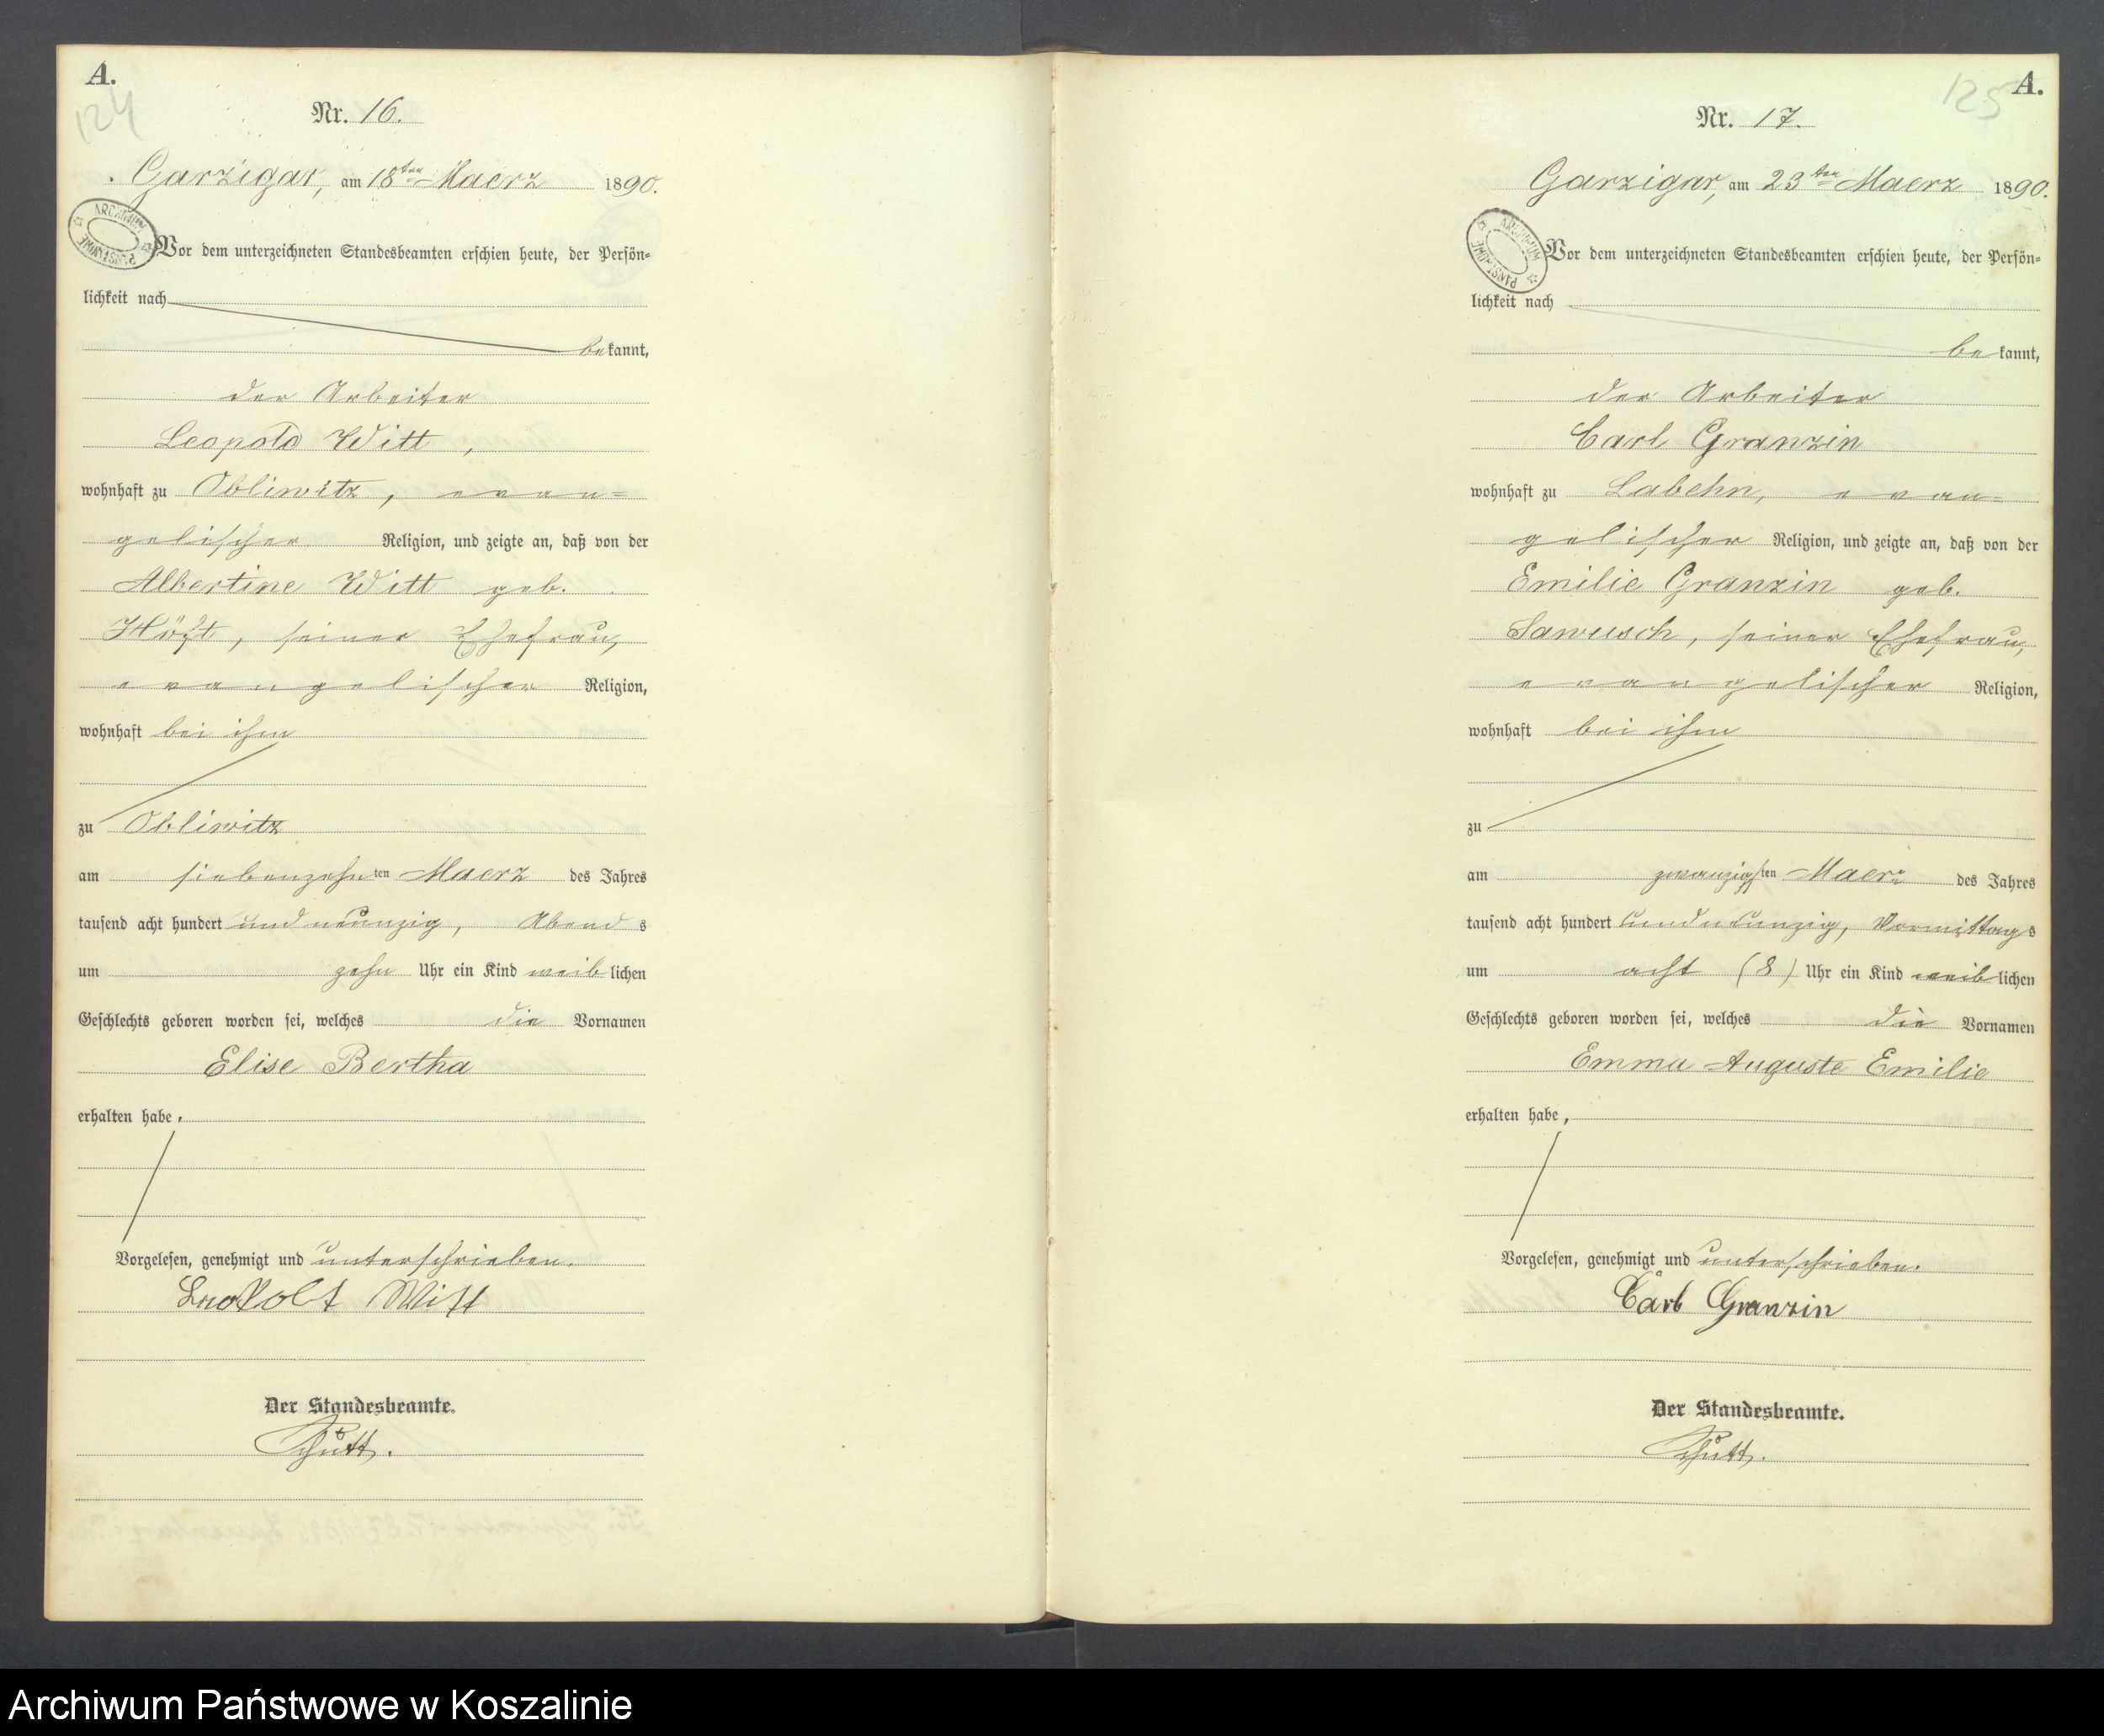 A.
124
Nr. 16.
Garzigar, am 18ten Maerz 1890.
ARCHIWUM PAŃSTWOWE
Vor dem unterzeichneten Standesbeamten erschien heute, der Persön-
lichkeit nach
bekannt,
der Arbeiter
Leopold Witt,
wohnhaft zu Obliwitz, evan-
gelischer Religion, und zeigte an, daß von der
Albertine Witt geb.
seiner Ehefrau,
evangelischer Religion,
wohnhaft bei ihm
zu Obliwitz
am siebenzehnten Maerz des Jahres
tausend acht hundert und neunzig, Abends
um zehn Uhr ein Kind weiblichen
Geschlechts geboren worden sei, welches die Vornamen
Elise Bertha
erhalten habe.
Vorgelesen, genehmigt und unterschrieben.
Leopolt Witt
Der Standesbeamte.
Schütt.
A.
125
Nr. 17.
Garzigar, am 23ten Maerz 1890.
ARCHIWUM PAŃSTWOWE
Vor dem unterzeichneten Standesbeamten erschien heute, der Persön-
lichkeit nach
bekannt,
der Arbeiter
Carl Granzin
wohnhaft zu Labehn, evan-
gelischer Religion, und zeigte an, daß von der
Emilie Granzin geb.
Sawusch, seiner Ehefrau,
evangelischer Religion,
wohnhaft bei ihm
zu
am zwanzigsten Maerz des Jahres
tausend acht hundert und neunzig, Vormittags
um acht (8) Uhr ein Kind weiblichen
Geschlechts geboren worden sei, welches die Vornamen
Emma Auguste Emilie
erhalten habe,
Vorgelesen, genehmigt und unterschrieben.
Carl Granzin
Der Standesbeamte.
Schütt.
Archiwum Państwowe w Koszalinie